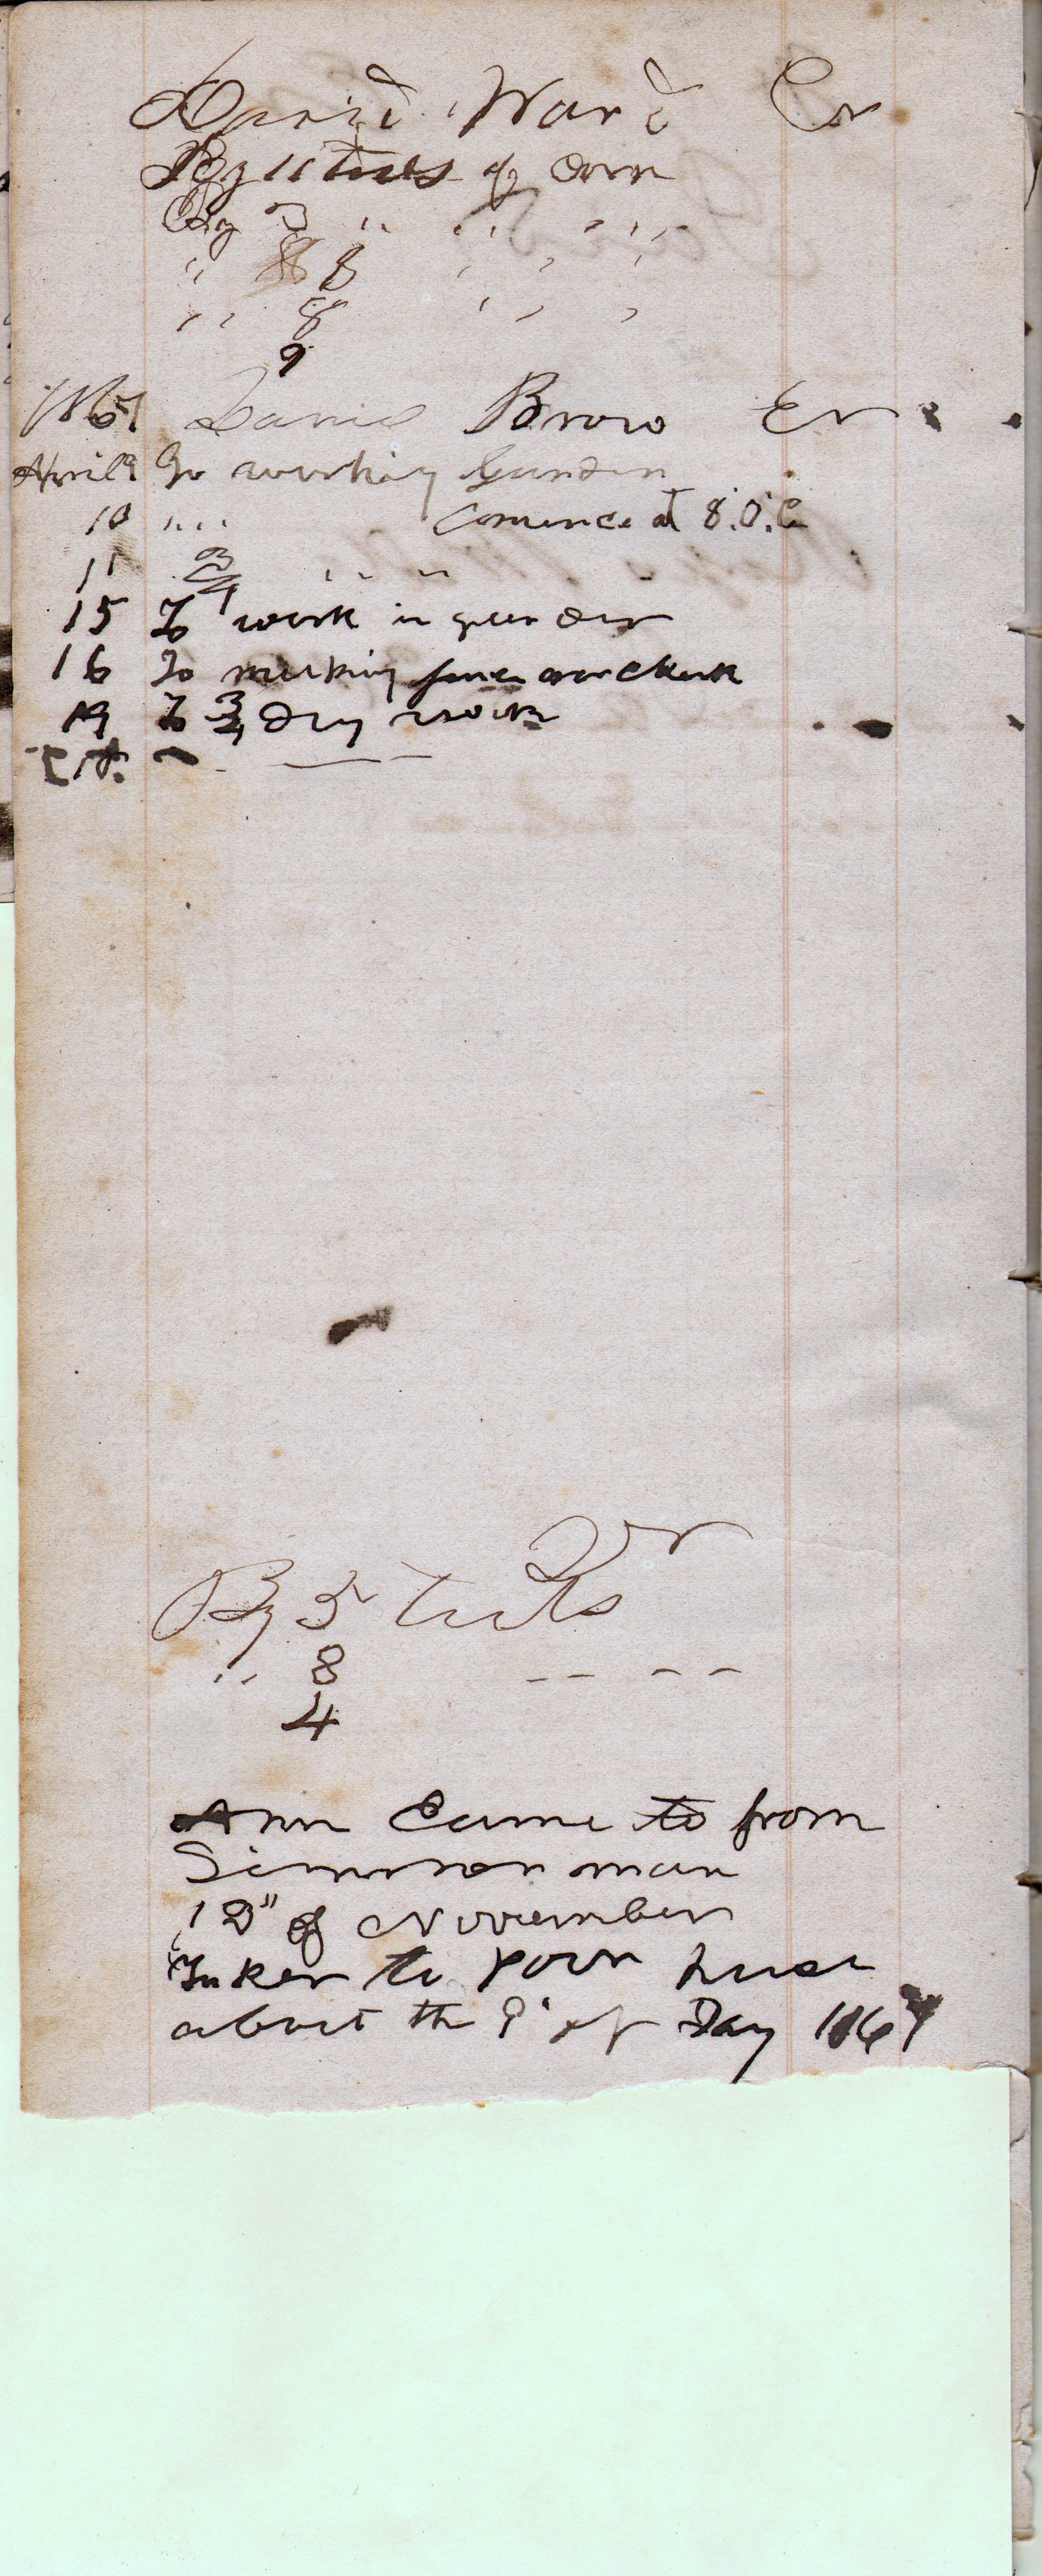 David Ward Cr
By 11 tubs of corn
By 3 " " " " "
" 8 " " "
" 8 " " "
9
1867 David Brow Cr
April 9 To working Garden
10 " " Comence at 8.O.C
11 3/4 " " "
15 To work in garden
16 To making fence
19 To 3/4 Day work
By 5 tubs
" 8 — — —
4
Ann Came to from
man
12" of November
Taken to Poor house
about the 9 of 1867